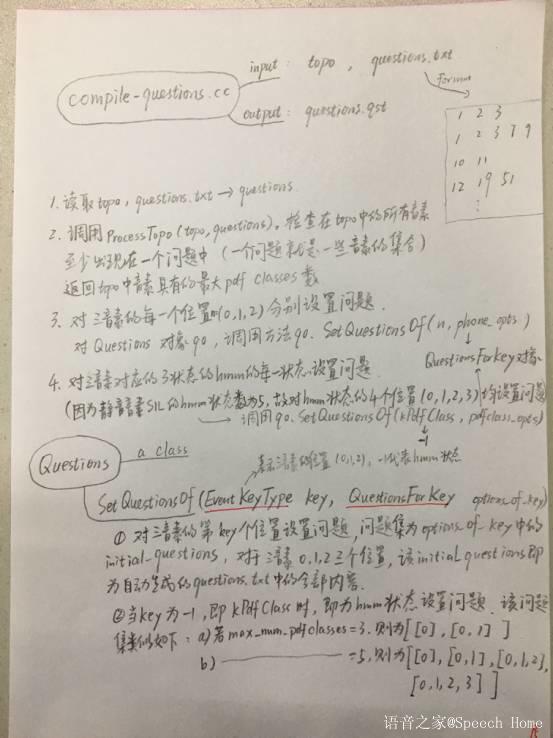 input: topo, questions.txt
compile-questions.cc
format
output: questions.qst
1 2 3
1 2 3 7 9
10 11
12 19 51
⋮
1. 读取topo, questions.txt → questions
2. 调用ProcessTopo(topo, questions)。检查在topo中的所有音素
至少出现在一个问题中 (一个问题就是一些音素的集合)
返回topo中音素具有的最大pdf classes数
3. 对三音素的每一个位置(0,1,2)分别设置问题.
对Questions 对象qo, 调用方法qo. SetQuestionsOf(n, phone_opts)
QuestionsForKey对象
4. 对三音素对应的3状态的hmm的每一状态设置问题.
(因为静音音素SIL的hmm状态数为5, 故对hmm状态的4个位置(0,1,2,3)均设置问题)
调用qo. SetQuestionsOf(kPdfClass, pdfclass_opts)
-1
Questions a class
表示三音素的位置(0,1,2), -1代表hmm状态
SetQuestionsOf(EventKeyType key, QuestionsForKey options_of_key)
① 对三音素的第key个位置设置问题, 问题集为options_of_key中的
initial-questions, 对于三音素0,1,2三个位置, 该initial questions即
为自动生成的questions.txt中的全部内容.
②当key为-1, 即kPdfClass时, 即为hmm状态设置问题. 该问题
集类似如下: a)若max_num_pdfclasses=3, 则为[[0], [0,1]]
b) ——— =5, 则为[[0], [0,1], [0,1,2],
[0,1,2,3]]
语音之家@Speech Home